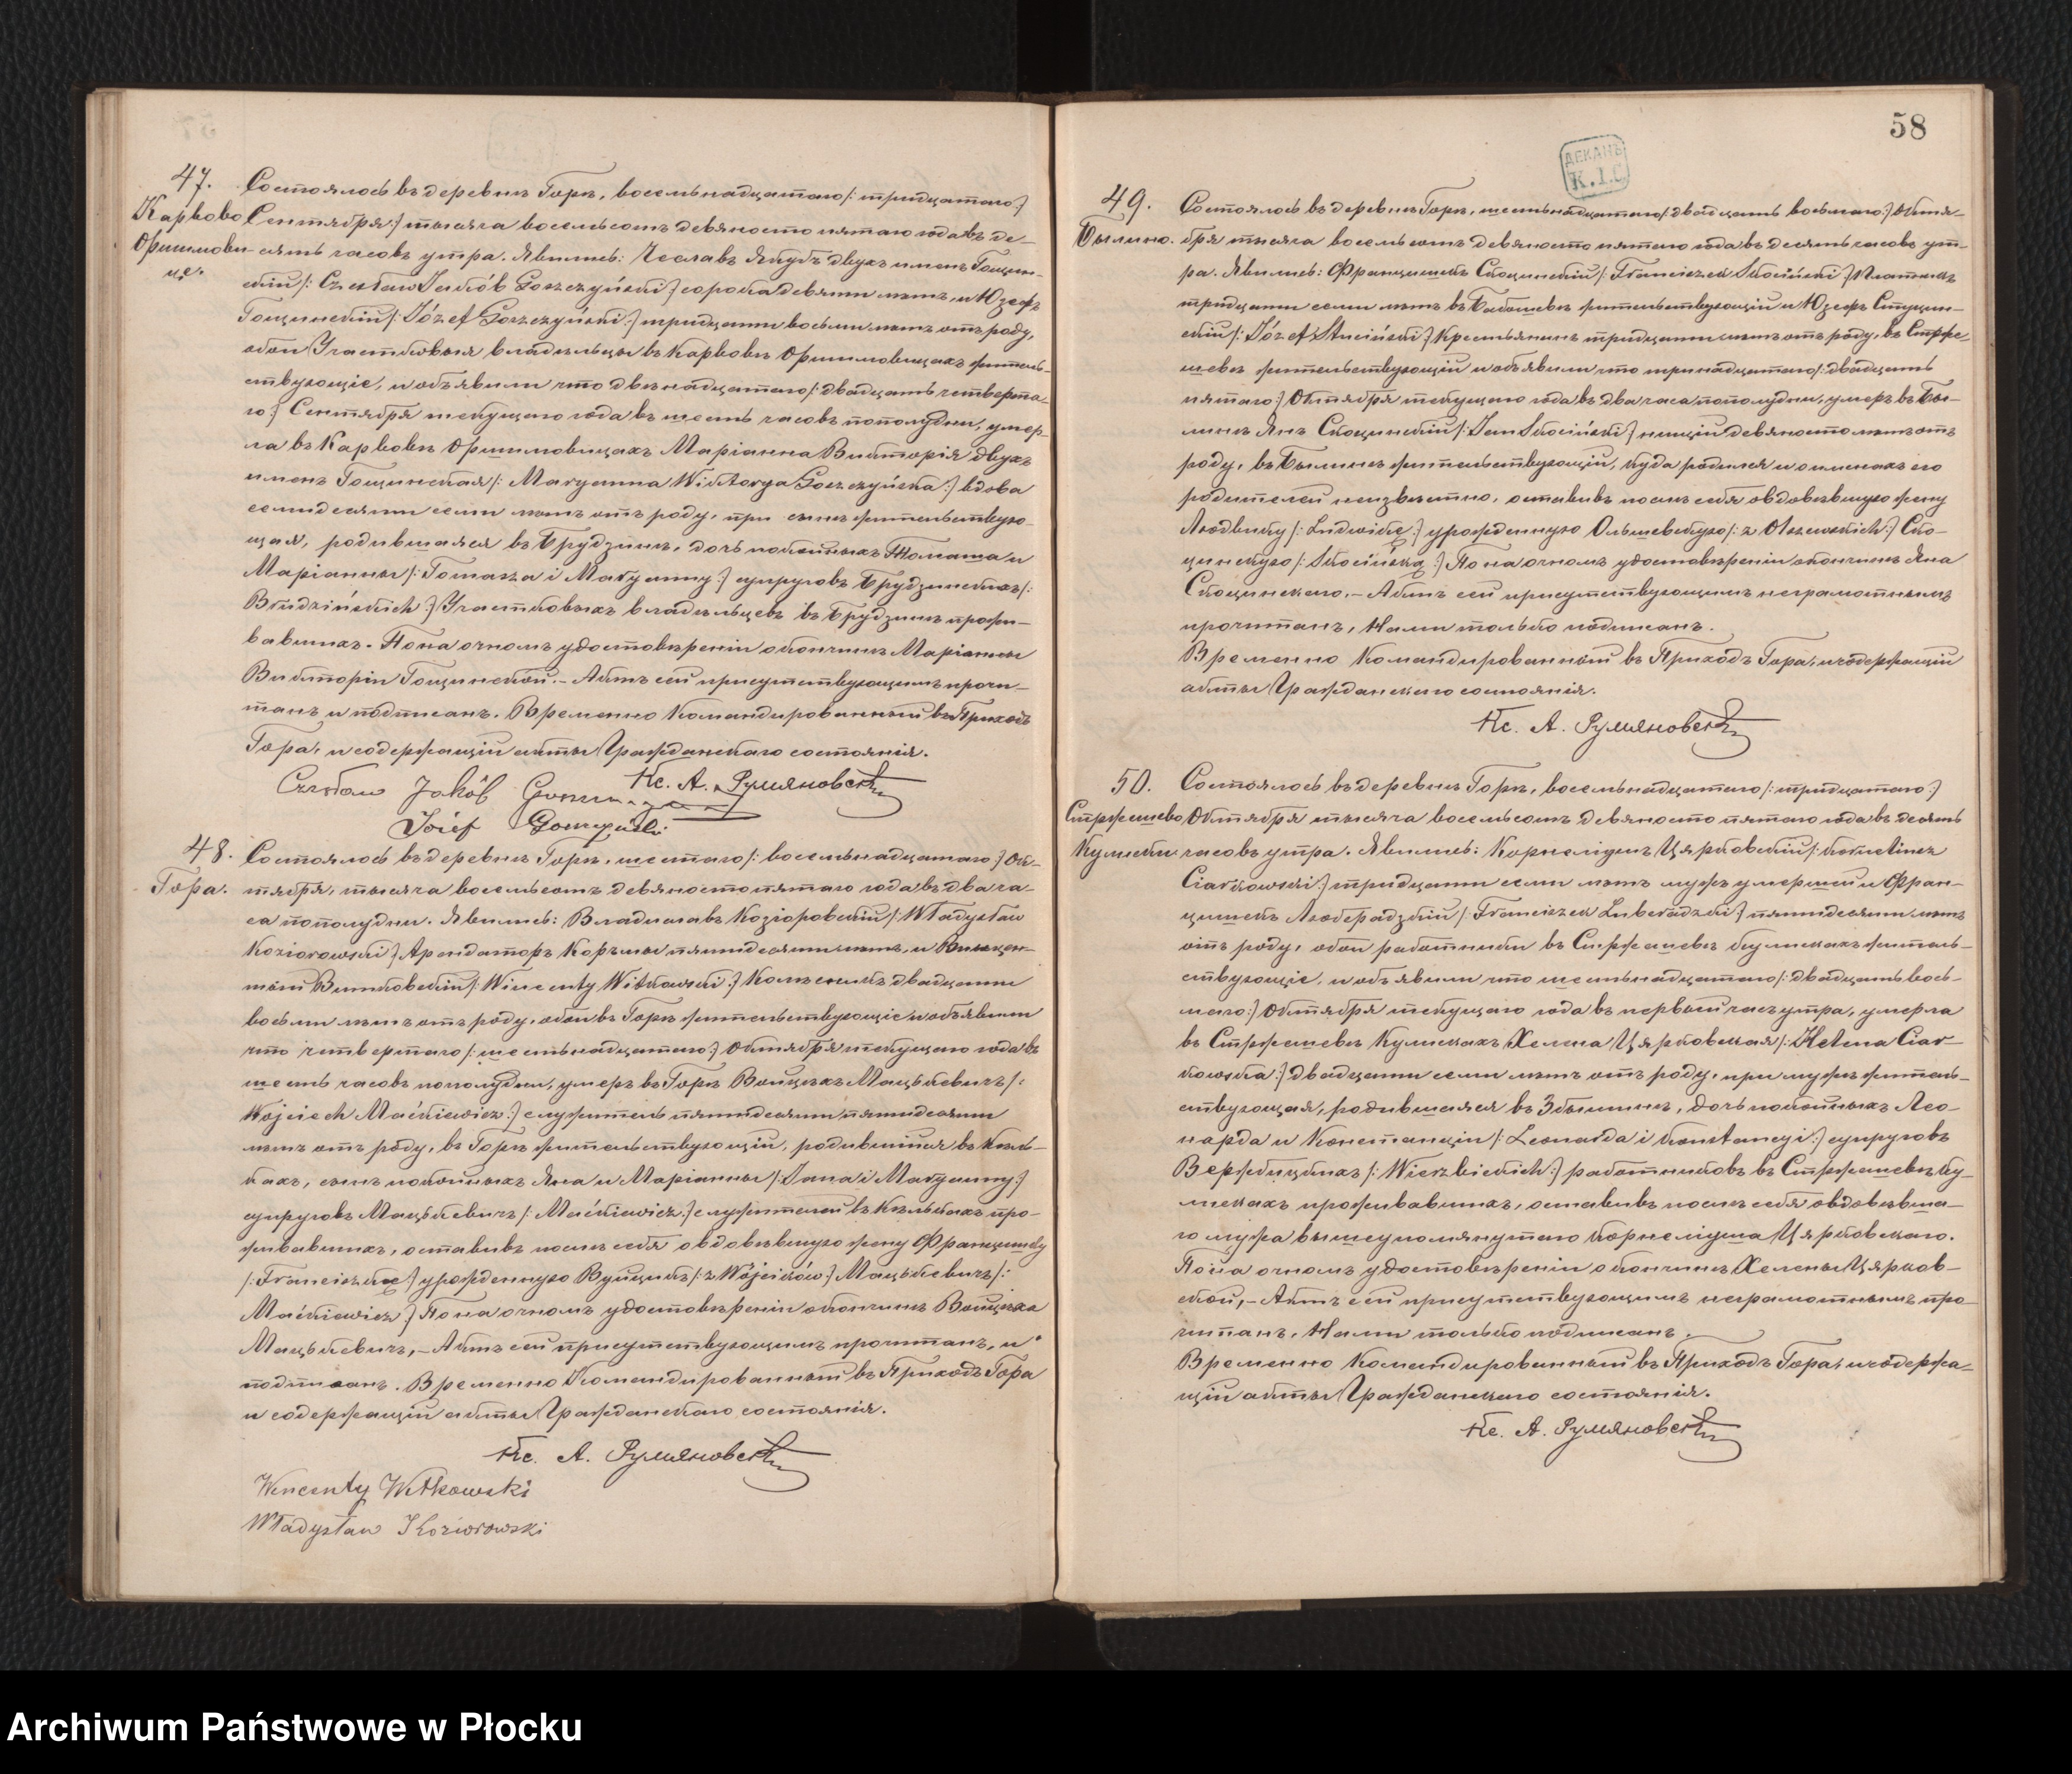 47.
Карвово
Оришмови-
це.
Состоялось въ деревнѣ Горѣ, восемьнадцатаго /: тридцатаго :/
Сентября :/ тысяча восемьсотъ девяносто пятаго года въ де-
сять часовъ утра. Явились: Чеславъ Якубъ двухъ именъ Гощин-
скій /: Czesław Jakób Goszczyński :/ сорока девяти лѣтъ, и Юзефъ
Гощинскій /: Józef Goszczyński :/ тридцати восьми лѣтъ отъ роду,
обои Участковыя владѣльцы въ Карвовѣ Оришмовицахъ житель-
ствующіе, и объявили что двѣнадцатаго /: двадцать четверта-
го :/ Сентября текущаго года въ шесть часовъ пополудни, умер-
ла въ Карвовѣ Оришмовицахъ Маріанна Викторія двухъ
именъ Гощинская /: Maryanna Wiktorya Goszczyńska :/ вдова
семидесяти семи лѣтъ отъ роду, при сынѣ жительствую-
щая, родившаяся въ Брудзинѣ, дочь покойныхъ Томаша и
Маріанны /: Tomasza i Maryanny :/ супруговъ Брудзинскихъ /:
Brudzińskich :/ Участковыхъ владѣльцевъ въ Брудзинѣ прожи-
вавшихъ. По наочномъ удостовѣреніи о кончинѣ Маріанны
Викторіи Гощинской. – Актъ сей присутствующимъ прочи-
танъ и подписанъ. Временно Командированный въ Приходъ
Гора, и содержащій акты Гражданскаго состоянія.
Кс. А. Румяновскій
Czesław Jakób
Józef Goszczyński
48.
Гора.
Состоялось въ деревнѣ Горѣ, шестаго /: восемьнадцатаго :/ Ок-
тября, тысяча восемьсотъ девяносто пятаго года въ два ча-
са пополудни. Явились: Владиславъ Козіоровскій /: Władysław
Koziorowski :/ Арендаторъ Корчмы пятидесяти лѣтъ, и Винцен-
тый Витковскій /: Wincenty Witkowski :/ двадцати
восьми лѣтъ отъ роду, обои въ Горѣ жительствующіе и объявили
что четвертаго /: шестьнадцатаго :/ Октября текущаго года въ
шесть часовъ пополудни, умеръ въ Горѣ Войцѣхъ Мацькевичъ /:
Wojciech Maćkiewicz :/ служитель пятидесяти пятидесяти
лѣтъ отъ роду, въ Горѣ жительствующій, родившійся въ Кѣль-
кахъ, сынъ покойныхъ Яна и Маріанны /: Jana i Maryanny :/
супруговъ Мацькевичъ /: Maćkiewicz :/ служителей въ Кѣлькахъ про-
живавшихъ, оставивъ послѣ себя овдовѣвшую жену Францишку
/: Franciszkę :/ урожденную Вуйцикъ /: z Wójcików :/ Мацькевичъ /:
Maćkiewicz :/ По наочномъ удостовѣреніи о кончинѣ Войцѣха
Мацькевичъ, – Актъ сей присутствующимъ прочитанъ, и
подписанъ. Временно Командированный въ Приходъ Гора
и содержащій акты Гражданскаго состоянія.
Кс. А. Румяновскій
Wincenty Witkowski
Władysław Koziorowski
58
ДЕКАНЪ
К.І.С.
49.
Былино.
Состоялось въ деревнѣ Горѣ, шестьнадцатаго /: двадцать восьмаго :/ Октя-
бря тысяча восемьсотъ девяносто пятаго года въ десять часовъ ут-
ра. Явились: Францишекъ Скоцинскій /: Franciszek Skociński :/
тридцати семи лѣтъ въ жительствующій и Юзефъ Стуцин-
скій /: Józef Stuciński :/ Крестьянинъ тридцати лѣтъ отъ роду, въ Стрже-
шевѣ жительствующій и объявили что тринадцатаго /: двадцать
пятаго :/ Октября текущаго года въ два часа пополудни, умеръ въ Бы-
линѣ Янъ Скоцинскій /: Jan Skociński :/ нищій девяносто лѣтъ отъ
роду, въ Былинѣ жительствующій, куда родился и о именахъ его
родителей неизвѣстно, оставивъ послѣ себя овдовѣвшую жену
Людвику /: Ludwikę :/ урожденную Ольшевскую /: z Olszewskich :/ Ско-
цинскую /: Skocińską :/ По наочномъ удостовѣреніи о кончинѣ Яна
Скоцинскаго. – Актъ сей присутствующимъ неграмотнымъ
прочитанъ, Нами только подписанъ.
Временно Командированный въ Приходъ Гора, и содержащій
акты Гражданскаго состоянія.
Кс. А. Румяновскій
50.
Стржешево
Кумелки
Состоялось въ деревнѣ Горѣ, восемьнадцатаго /: тридцатаго :/
Октября тысяча восемьсотъ девяносто пятаго года въ десять
часовъ утра. Явились: Корнеліушъ Цярковскій /: Kornelinsz
Ciarkowski :/ тридцати семи лѣтъ мужъ умершей и Фран-
цишекъ Люберадзкій /: Franciszek Luberadzki :/ пятидесяти лѣтъ
отъ роду, обои работники въ Стржешевѣ житель-
ствующіе, и объявили что шестьнадцатаго /: двадцать вось-
маго :/ Октября текущаго года въ первый часъ утра, умерла
въ Стржешевѣ Хелена Цярковская /: Helena Ciar-
kowska :/ двадцати семи лѣтъ отъ роду, при мужѣ житель-
ствующая, родившаяся въ Збышинѣ, дочь покойныхъ Лео-
нарда и Констанціи /: Leonarda i Konstancyi :/ супруговъ
Вержбицкихъ /: Wierzbickich :/ работниковъ въ Стржешевѣ Ку-
мелкахъ проживавшихъ, оставивъ послѣ себя овдовѣвша-
го мужа вышеупомянутаго Корнеліуша Цярковскаго.
По наочномъ удостовѣреніи о кончинѣ Хелены Цярков-
ской, – Актъ сей присутствующимъ неграмотнымъ про-
читанъ, Нами только подписанъ.
Временно Командированный въ Приходъ Гора, и содержа-
щій акты Гражданскаго состоянія.
Кс. А. Румяновскій
Archiwum Państwowe w Płocku